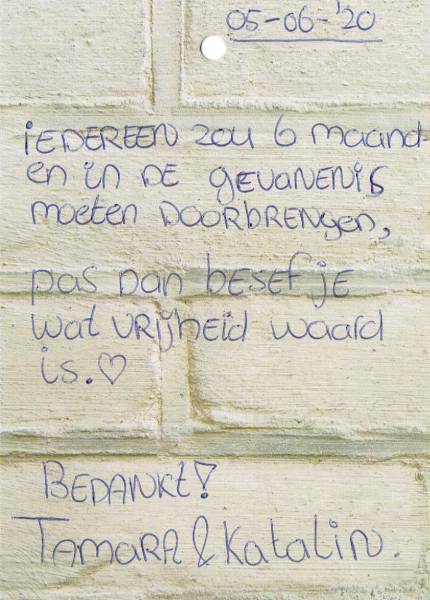 05-06-'20
iEDEREEN zou 6 maand-
en in DE gevanenis
moeten DOORbRENgen,
pas Dan besef je
wat VRijheid waard
is.♡
BEDANkt!
TamaRa & Katalin.